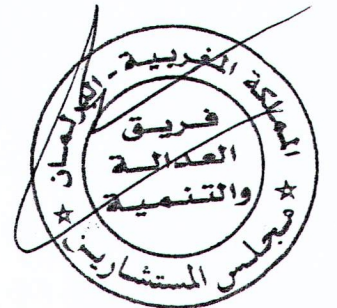 المملكة المغربية - البرلمان
فريق
العدالة
والتنمية
مجلس المستشارين